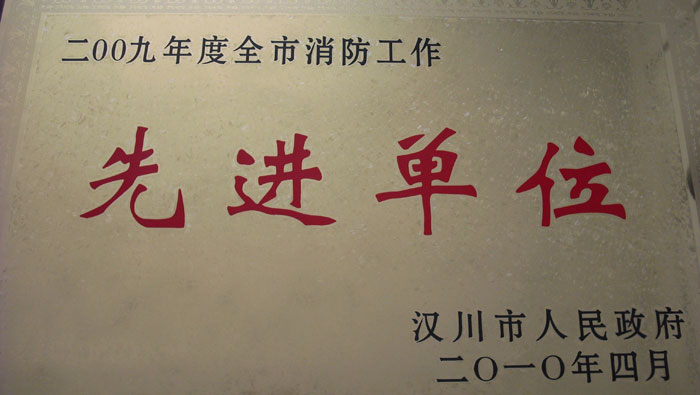 二00九年度全市消防工作
先进单位
汉川市人民政府
二〇一〇年四月